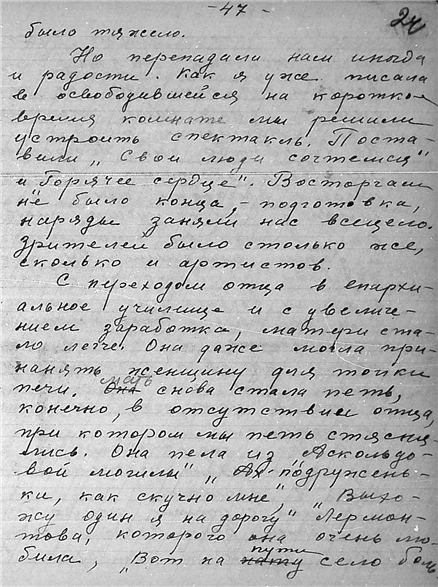 - 47 -
24
было тяжело.
Но перепадали нам иногда
и радости. Как я уже писала
в освободившейся на короткое
время комнате мы решили
устроить спектакль. Поста-
вили „Свои люди сочтемся"
и „Горячее сердце". Восторгам
не было конца, - подготовка,
наряды заняли нас всецело.
Зрителей было столько же,
сколько и артистов.
С переходом отца в епархи-
альное училище и с увеличе-
нием заработка, матери ста-
ло легче. Она даже могла при-
нанять женщину для топки
печи. Она мать снова стала петь,
конечно, в отсутствии отца,
при котором мы петь стесня-
лись. Она пела из „Аскольдо-
вой могилы" „Ах подружень-
ки, как скучно мне", „Выхо-
жу один я на дорогу" Лермон-
това, которого она очень лю-
била, „Вот на пути село боль